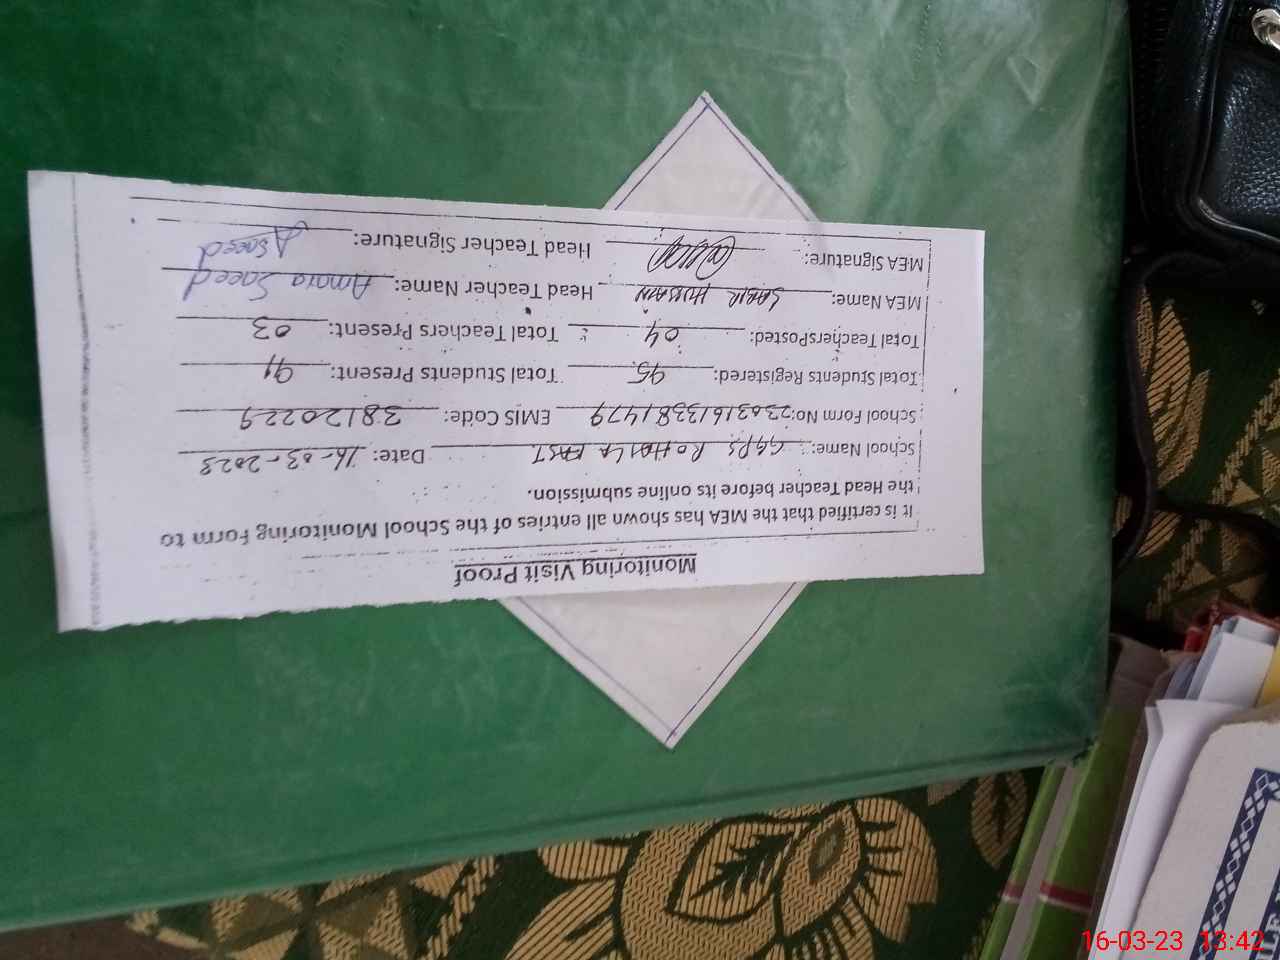 Monitoring Visit Proof
It is certified that the MEA has shown all entries of the School Monitoring Form to
the Head Teacher before its online submission.
School Name: GGPS Rohaila East Date: 16-03-2023
School Form No: 230316133381479 EMIS Code: 38120229
Total Students Registered: 95 Total Students Present: 91
Total TeachersPosted: 04 Total Teachers Present: 03
MEA Name: SABIR HUSSAIN Head Teacher Name: Amara Saeed
MEA Signature: Head Teacher Signature: Asaeed
16-03-23 13:42